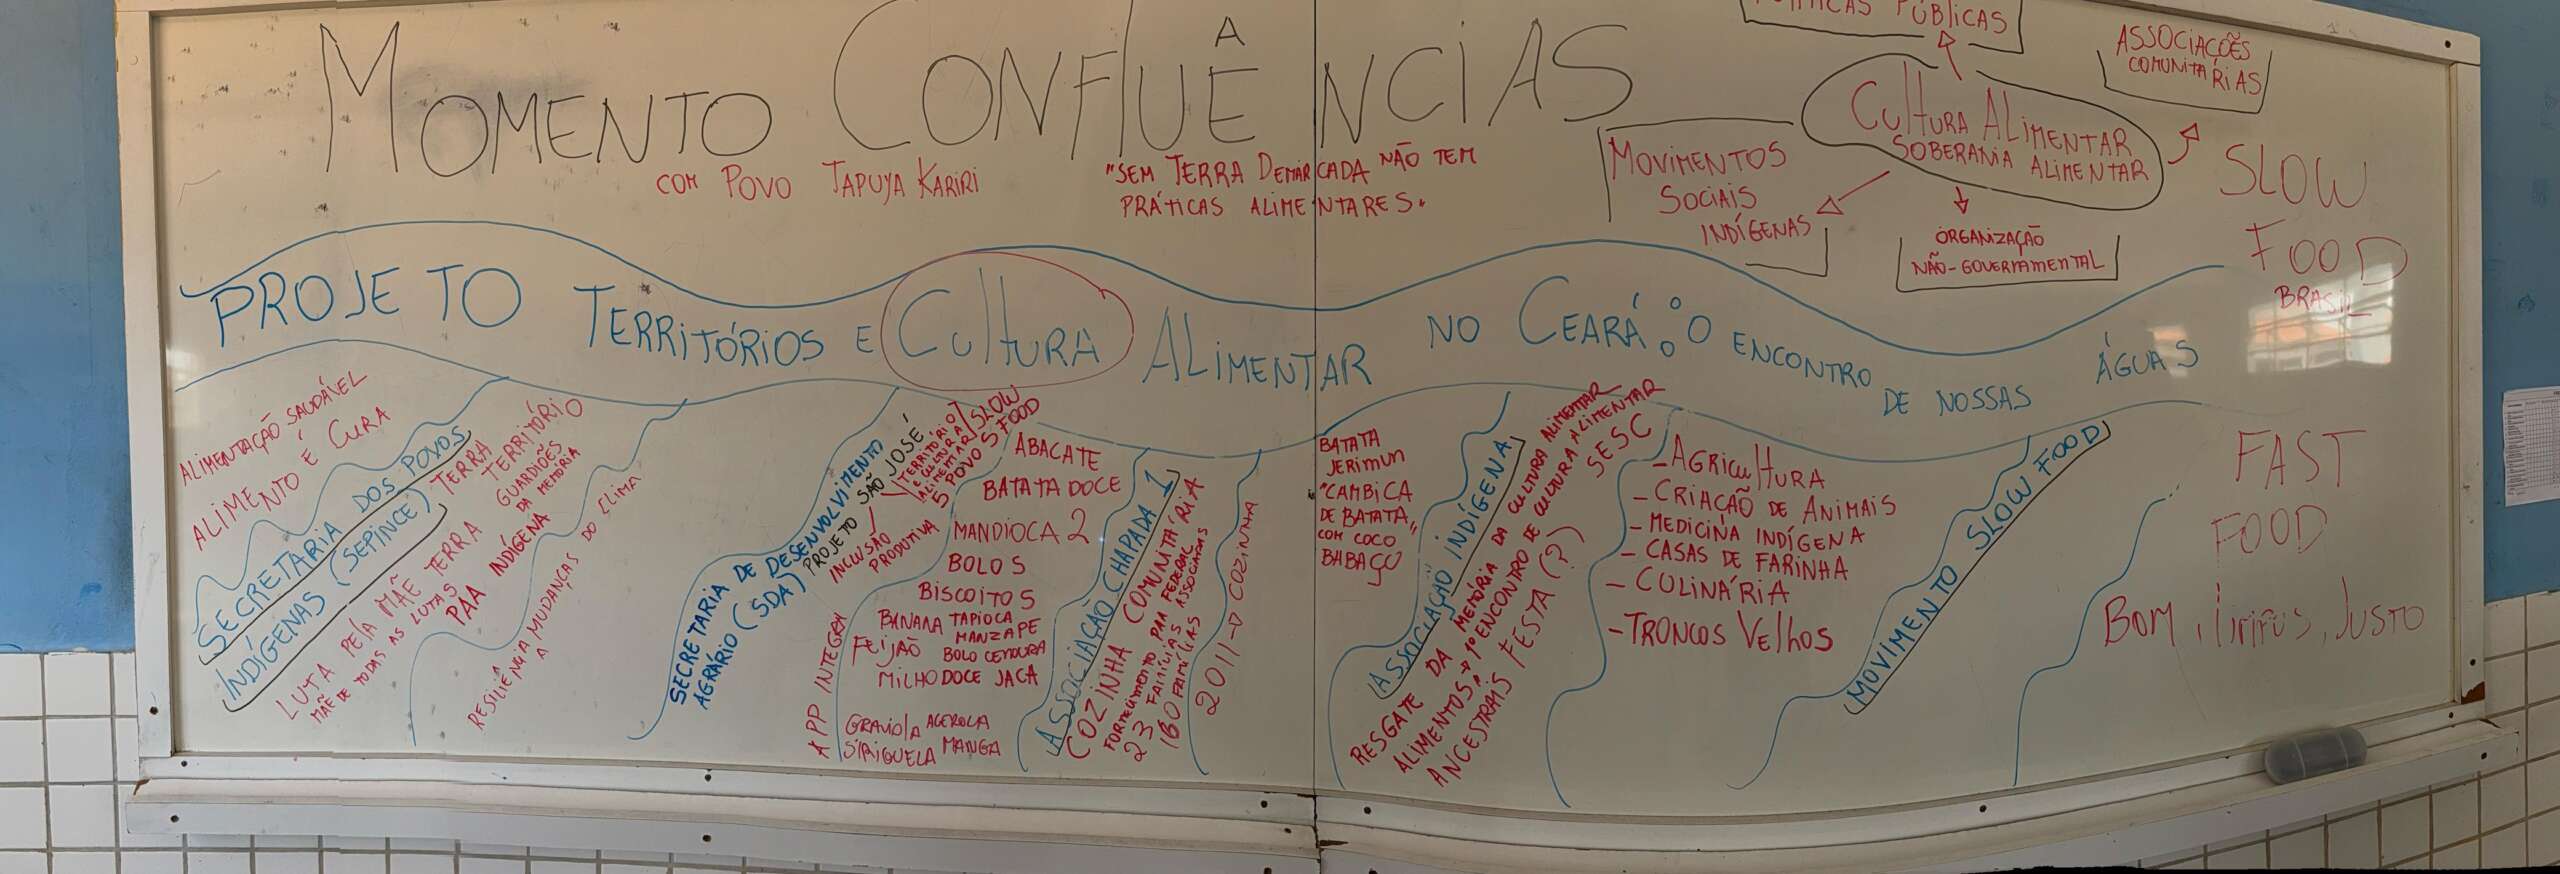 MOMENTO CONFLUÊNCIAS
A
COM POVO TAPUYA KARIRI
"SEM TERRA DEMARCADA NÃO TEM
PRÁTICAS ALIMENTARES.
PÚBLICAS
ASSOCIAÇÕES
COMUNITÁRIAS
CULTURA ALIMENTAR
SOBERANIA ALIMENTAR
MOVIMENTOS
SOCIAIS
INDÍGENAS
ORGANIZAÇÃO
NÃO-GOVERNAMENTAL
SLOW
FOOD
BRASIL
PROJETO TERRITÓRIOS E CULTURA ALIMENTAR NO CEARÁ: O ENCONTRO DE NOSSAS ÁGUAS
ALIMENTAÇÃO SAUDÁVEL
ALIMENTO É CURA
SECRETARIA DOS POVOS
INDÍGENAS (SEPINCE)
TERRA TERRITÓRIO
GUARDIÕES
DA MEMÓRIA
LUTA PELA MÃE TERRA
MÃE DE TODAS AS LUTAS
PAA INDÍGENA
RESILIÊNCIA A MUDANÇAS DO CLIMA
SECRETARIA DE DESENVOLVIMENTO
AGRÁRIO (SDA) PROJETO SÃO JOSÉ
INCLUSÃO
PRODUTIVA
TERRITÓRIO
E CULTURA
ALIMENTAR/SLOW
5 POVO S FOOD
APP INTEGRA
ABACATE
BATATA DOCE
MANDIOCA 2
BOLOS
BISCOITOS
BANANA TAPIOCA
MANZAPE
FEIJÃO BOLO CENOURA
MILHO DOCE JACA
GRAVIOLA ACEROLA
SIRIGUELA MANGA
ASSOCIAÇÃO CHAPADA 1
COZINHA COMUNITÁRIA
FORNECIMENTO PAA FEDERAL
23 FAMÍLIAS ASSOCIADAS
160 FAMÍLIAS
2011 → COZINHA
BATATA
JERIMUN
"CAMBICA
DE BATATA"
COM COCO
BABAÇU
ASSOCIAÇÃO INDÍGENA
RESGATE DA MEMÓRIA DA CULTURA ALIMENTAR
ALIMENTOS → 1º ENCONTRO DE CULTURA ALIMENTAR
ANCESTRAIS FESTA (?) SESC
- AGRICULTURA
- CRIAÇÃO DE ANIMAIS
- MEDICINA INDÍGENA
- CASAS DE FARINHA
- CULINÁRIA
- TRONCOS VELHOS
MOVIMENTO SLOW FOOD
FAST
FOOD
BOM, JUSTO